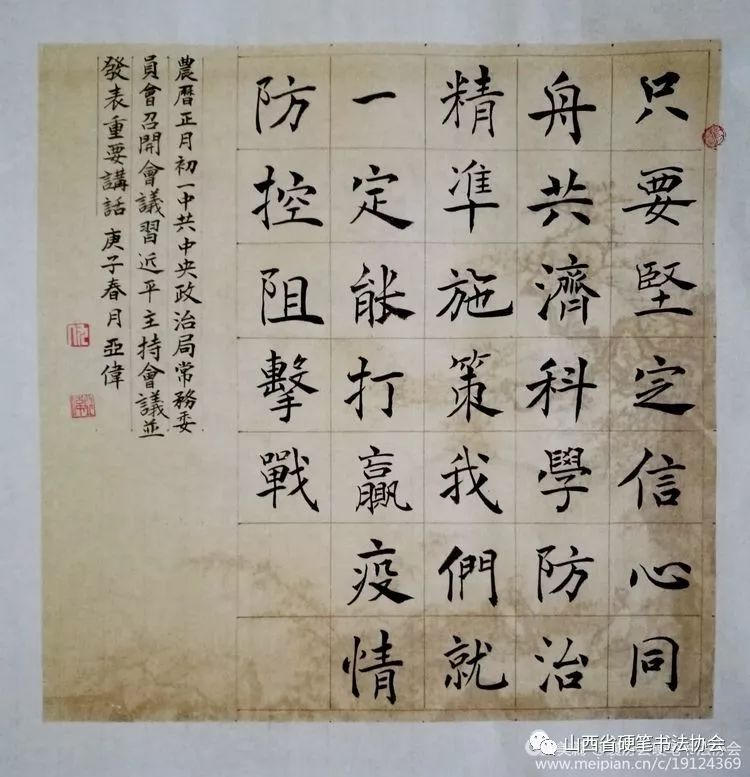 只要堅定信心同
舟共濟科學防治
精準施策我們就
一定能打贏疫情
防控阻擊戰
農曆正月初一中共中央政治局常務委
員會召開會議習近平主持會議並
發表重要講話庚子春月亞偉
山西省硬笔书法协会
www.meipian.cn/c/19124369